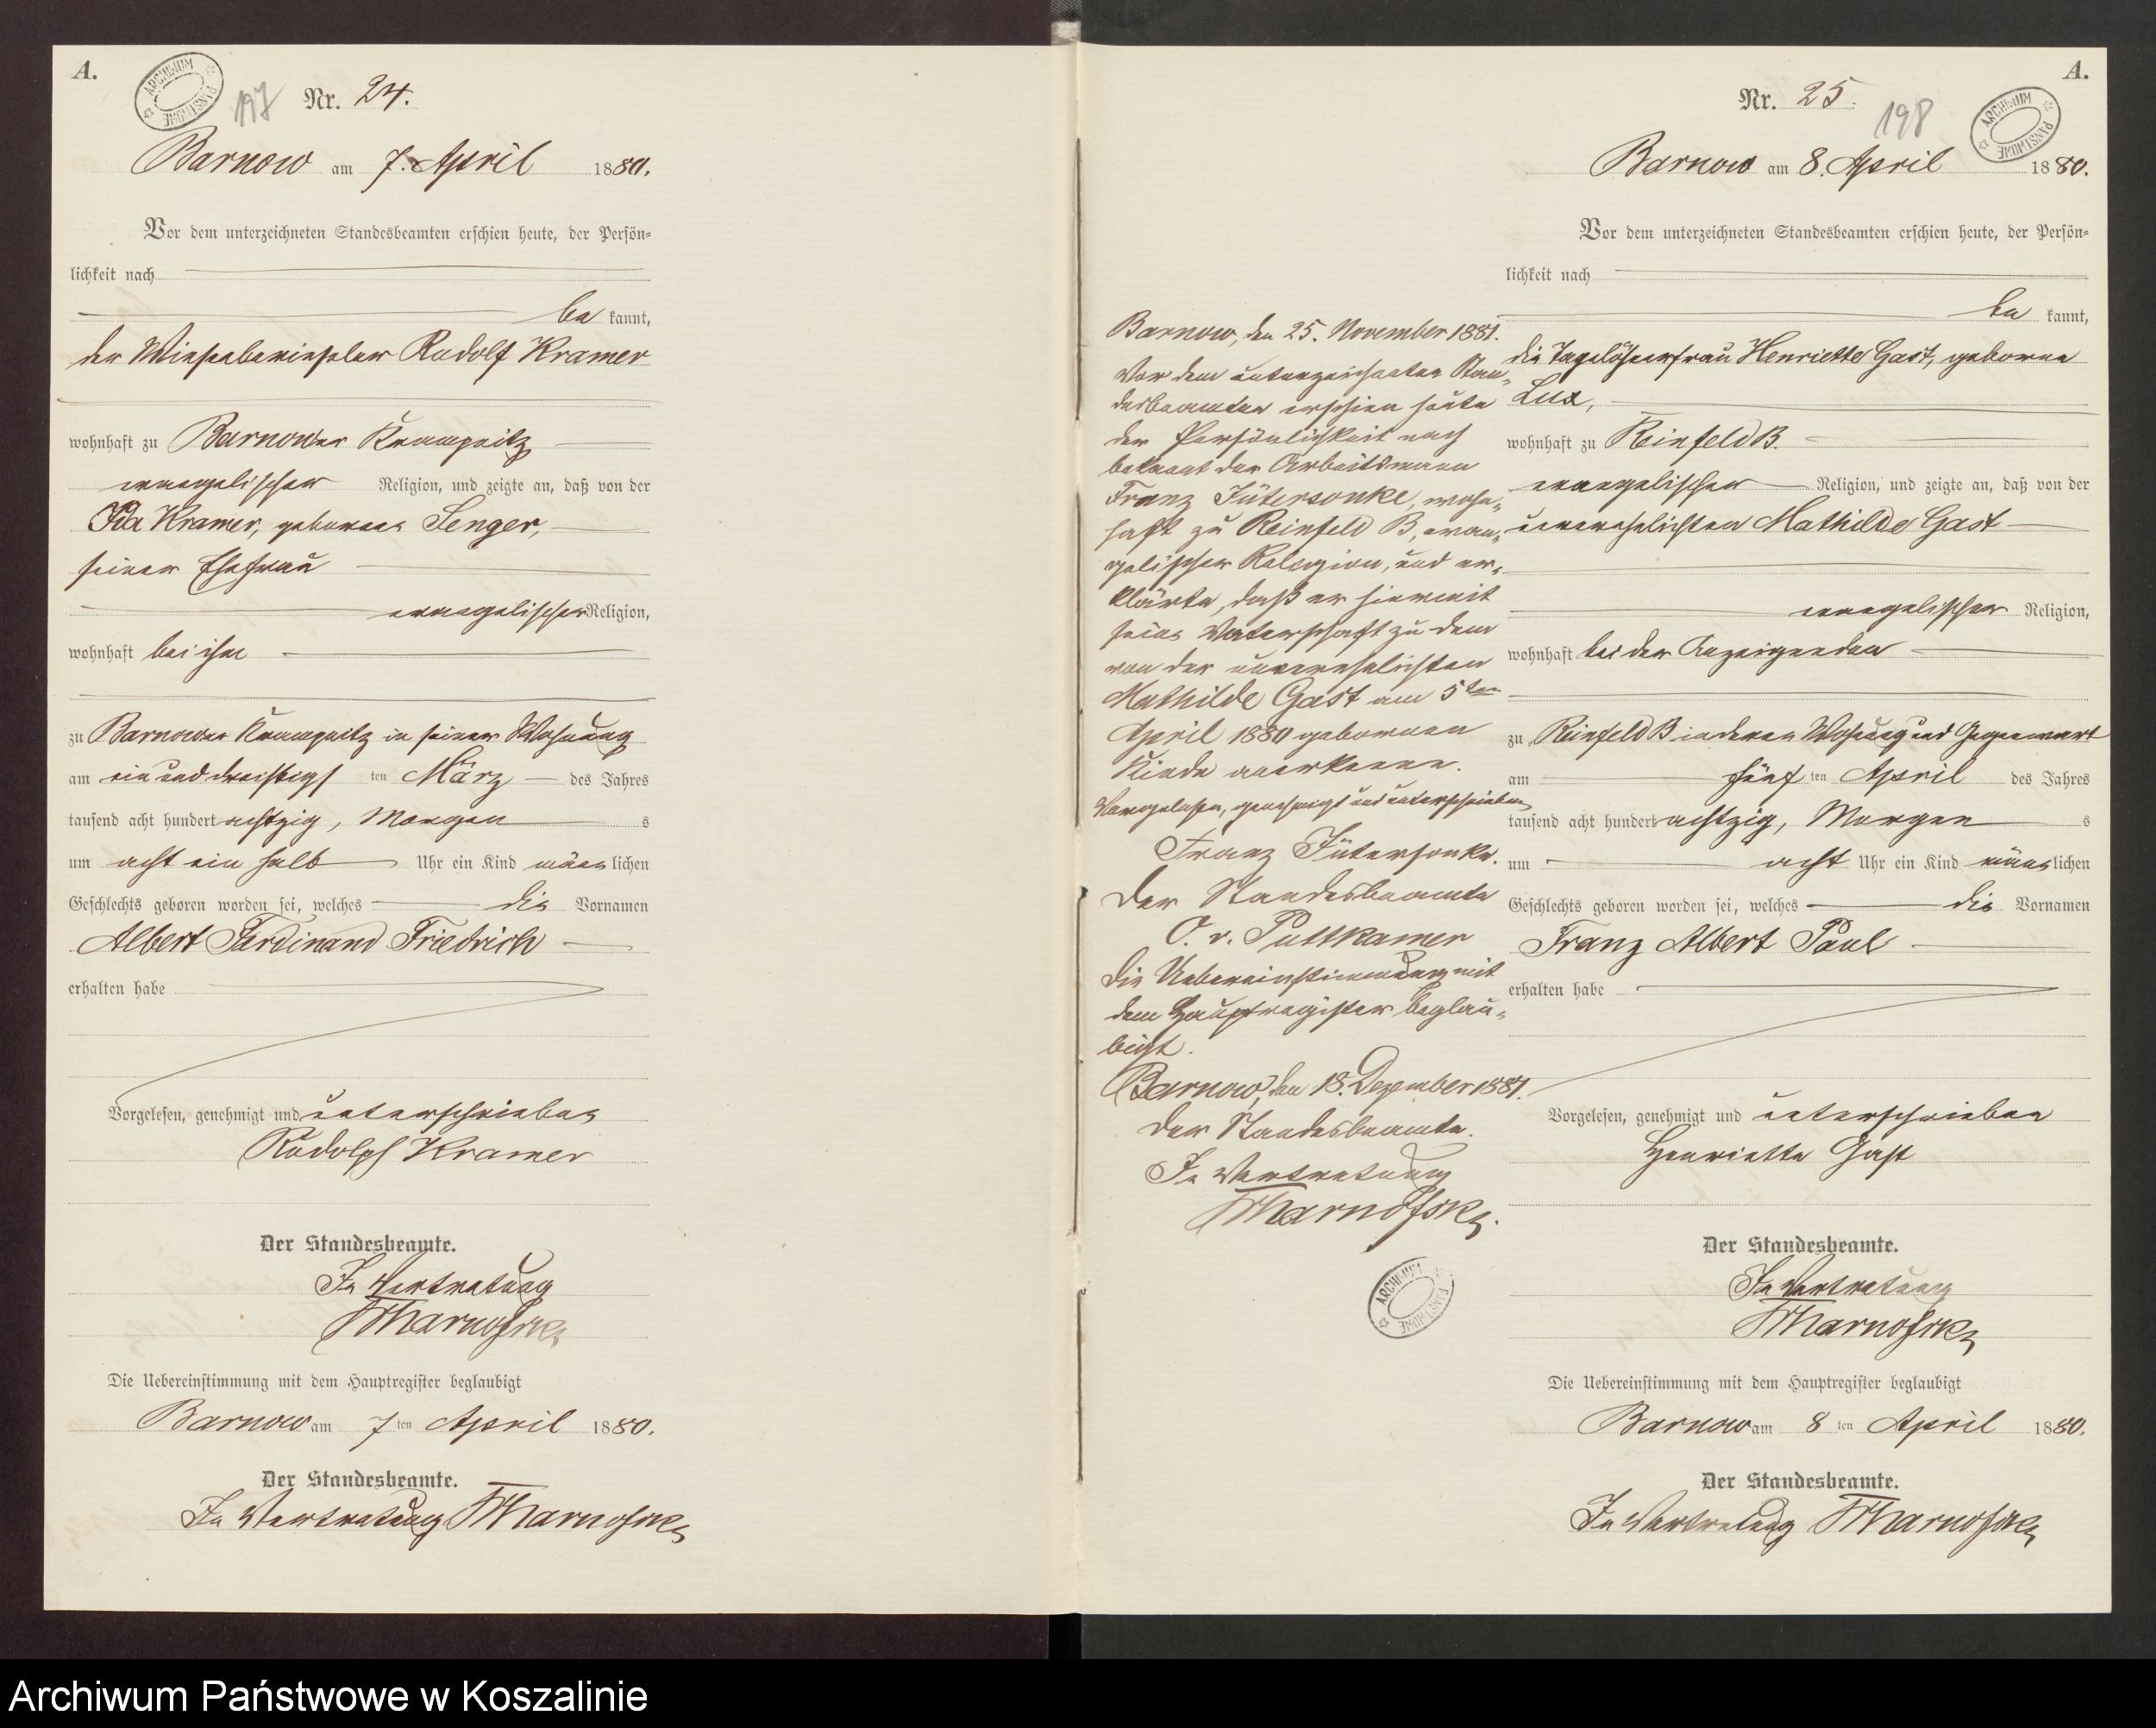 A.
ARCHIWUM PAŃSTWOWE
197
Nr. 24.
Barnow am 7. April 1880.
Vor dem unterzeichneten Standesbeamten erschien heute, der Persön-
lichkeit nach
be kannt,
der Rudolf Kramer
wohnhaft zu Barnower Krampnitz
evangelischer Religion, und zeigte an, daß von der
Ida Kramer, geborene Senger,
seiner Ehefrau
evangelischer Religion,
wohnhaft bei ihm
zu Barnower Krampnitz in seiner Wohnung
am ein und dreißigs ten März des Jahres
tausend acht hundert achtzig, Morgen s
um acht ein halb Uhr ein Kind männ lichen
Geschlechts geboren worden sei, welches die Vornamen
Albert Ferdinand Friedrich
erhalten habe
Vorgelesen, genehmigt und unterschrieben
Rudolph Kramer
Der Standesbeamte.
In Vertretung
Die Uebereinstimmung mit dem Hauptregister beglaubigt
Barnow am 7 ten April 1880.
Der Standesbeamte.
In Vertretung
Barnow, den 25. November 1881.
Vor dem unterzeichneten Stan-
desbeamten erschien heute
der Persönlichkeit nach
bekannt der Arbeitsmann
Franz Jütersonke, wohn-
haft zu Reinfeld B, evan-
gelischer Religion, und er-
klärte, daß er hiermit
seine Vaterschaft zu dem
von der unverehelichten
Mathilde Gast am 5ten
April 1880 geborenen
Kinde anerkenne.
Vorgelesen, genehmigt und unterschrieben
Franz Jütersonke.
Der Standesbeamte
O. v. Puttkamer
Die Uebereinstimmung mit
dem Hauptregister beglau-
bigt.
Barnow, den 18. Dezember 1881.
Der Standesbeamte.
In Vertretung
ARCHIWUM PAŃSTWOWE
A.
Nr. 25.
198
ARCHIWUM PAŃSTWOWE
Barnow am 8. April 1880.
Vor dem unterzeichneten Standesbeamten erschien heute, der Persön-
lichkeit nach
be kannt,
die Tagelöhnerfrau Henriette Gast, geborne
Lux,
wohnhaft zu Reinfeld B.
evangelischer Religion, und zeigte an, daß von der
unverehelichten Mathilde Gast
evangelischer Religion,
wohnhaft bei der Anzeigenden
zu Reinfeld B in deren Wohnung und Gegenwart
am fünf ten April des Jahres
tausend acht hundert achtzig, Morgen s
um acht Uhr ein Kind männ lichen
Geschlechts geboren worden sei, welches die Vornamen
Franz Albert Paul
erhalten habe
Vorgelesen, genehmigt und unterschrieben
Henriette Gast
Der Standesbeamte.
In Vertretung
Die Uebereinstimmung mit dem Hauptregister beglaubigt
Barnow am 8 ten April 1880.
Der Standesbeamte.
In Vertretung
Archiwum Państwowe w Koszalinie